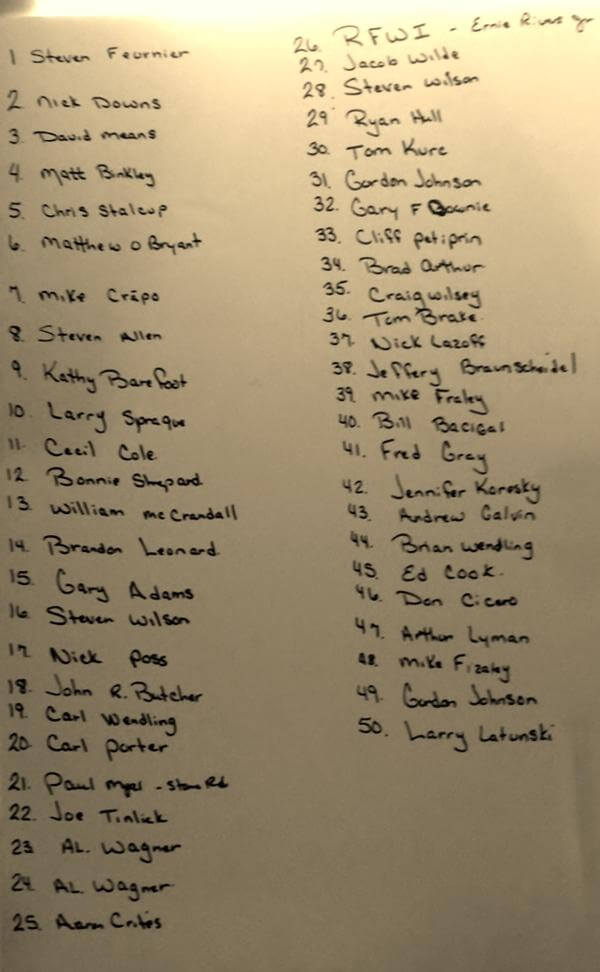 1 Steven Fournier
2 Nick Downs
3. David Means
4. Matt Binkley
5. Chris Stalcup
6. Matthew O Bryant
7. Mike Crapo
8. Steven Allen
9. Kathy Barefoot
10. Larry Sprague
11. Cecil Cole
12. Bonnie Shepard
13. William McCrandall
14. Brandon Leonard
15. Gary Adams
16. Steven Wilson
17. Nick Poss
18. John R. Butcher
19. Carl Wendling
20. Carl Porter
21. Paul - Stone Rd
22. Joe Tinlick
23 AL. Wagner
24. AL. Wagner
25. Aaron Crites
26. RFWI - Ernie Rivers Jr
27. Jacob Wilde
28. Steven Wilson
29 Ryan Hull
30. Tom Kurc
31. Gordon Johnson
32. Gary F Downie
33. Cliff Petiprin
34. Brad Arthur
35. Craig Wilsey
36. Tom Brake
37. Nick Lazoff
38. Jeffery Braunscheidel
39. Mike Fraley
40. Bill Bacigal
41. Fred Gray
42. Jennifer Korosky
43. Andrew Galvin
44. Brian Wendling
45. Ed Cook.
46. Don Cicero
47. Arthur Lyman
48. Mike
49. Gordon Johnson
50. Larry Latunski